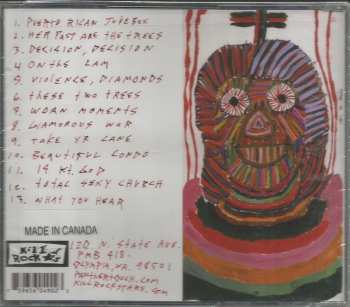 1. PUERTO RICAN JUKEBOX
2. HER PAST ARE THE TREES
3. DECISION, DECISION
4. ON THE LAM
5. VIOLENCE, DIAMONDS
6. THESE TWO TREES
7. WORN MOMENTS
8. GLAMOROUS WEB
9. TAKE YR LANE
10. BEAUTIFUL CONDO
11. 14 KT. GOD
12. TOTAL SEXY CHURCH
13. WHAT YOU HEAR
MADE IN CANADA
KILL
ROCK
120 N. STATE AVE.
PMB 418
OLYMPIA, WA. 98501
KILLROCKSTARS.COM